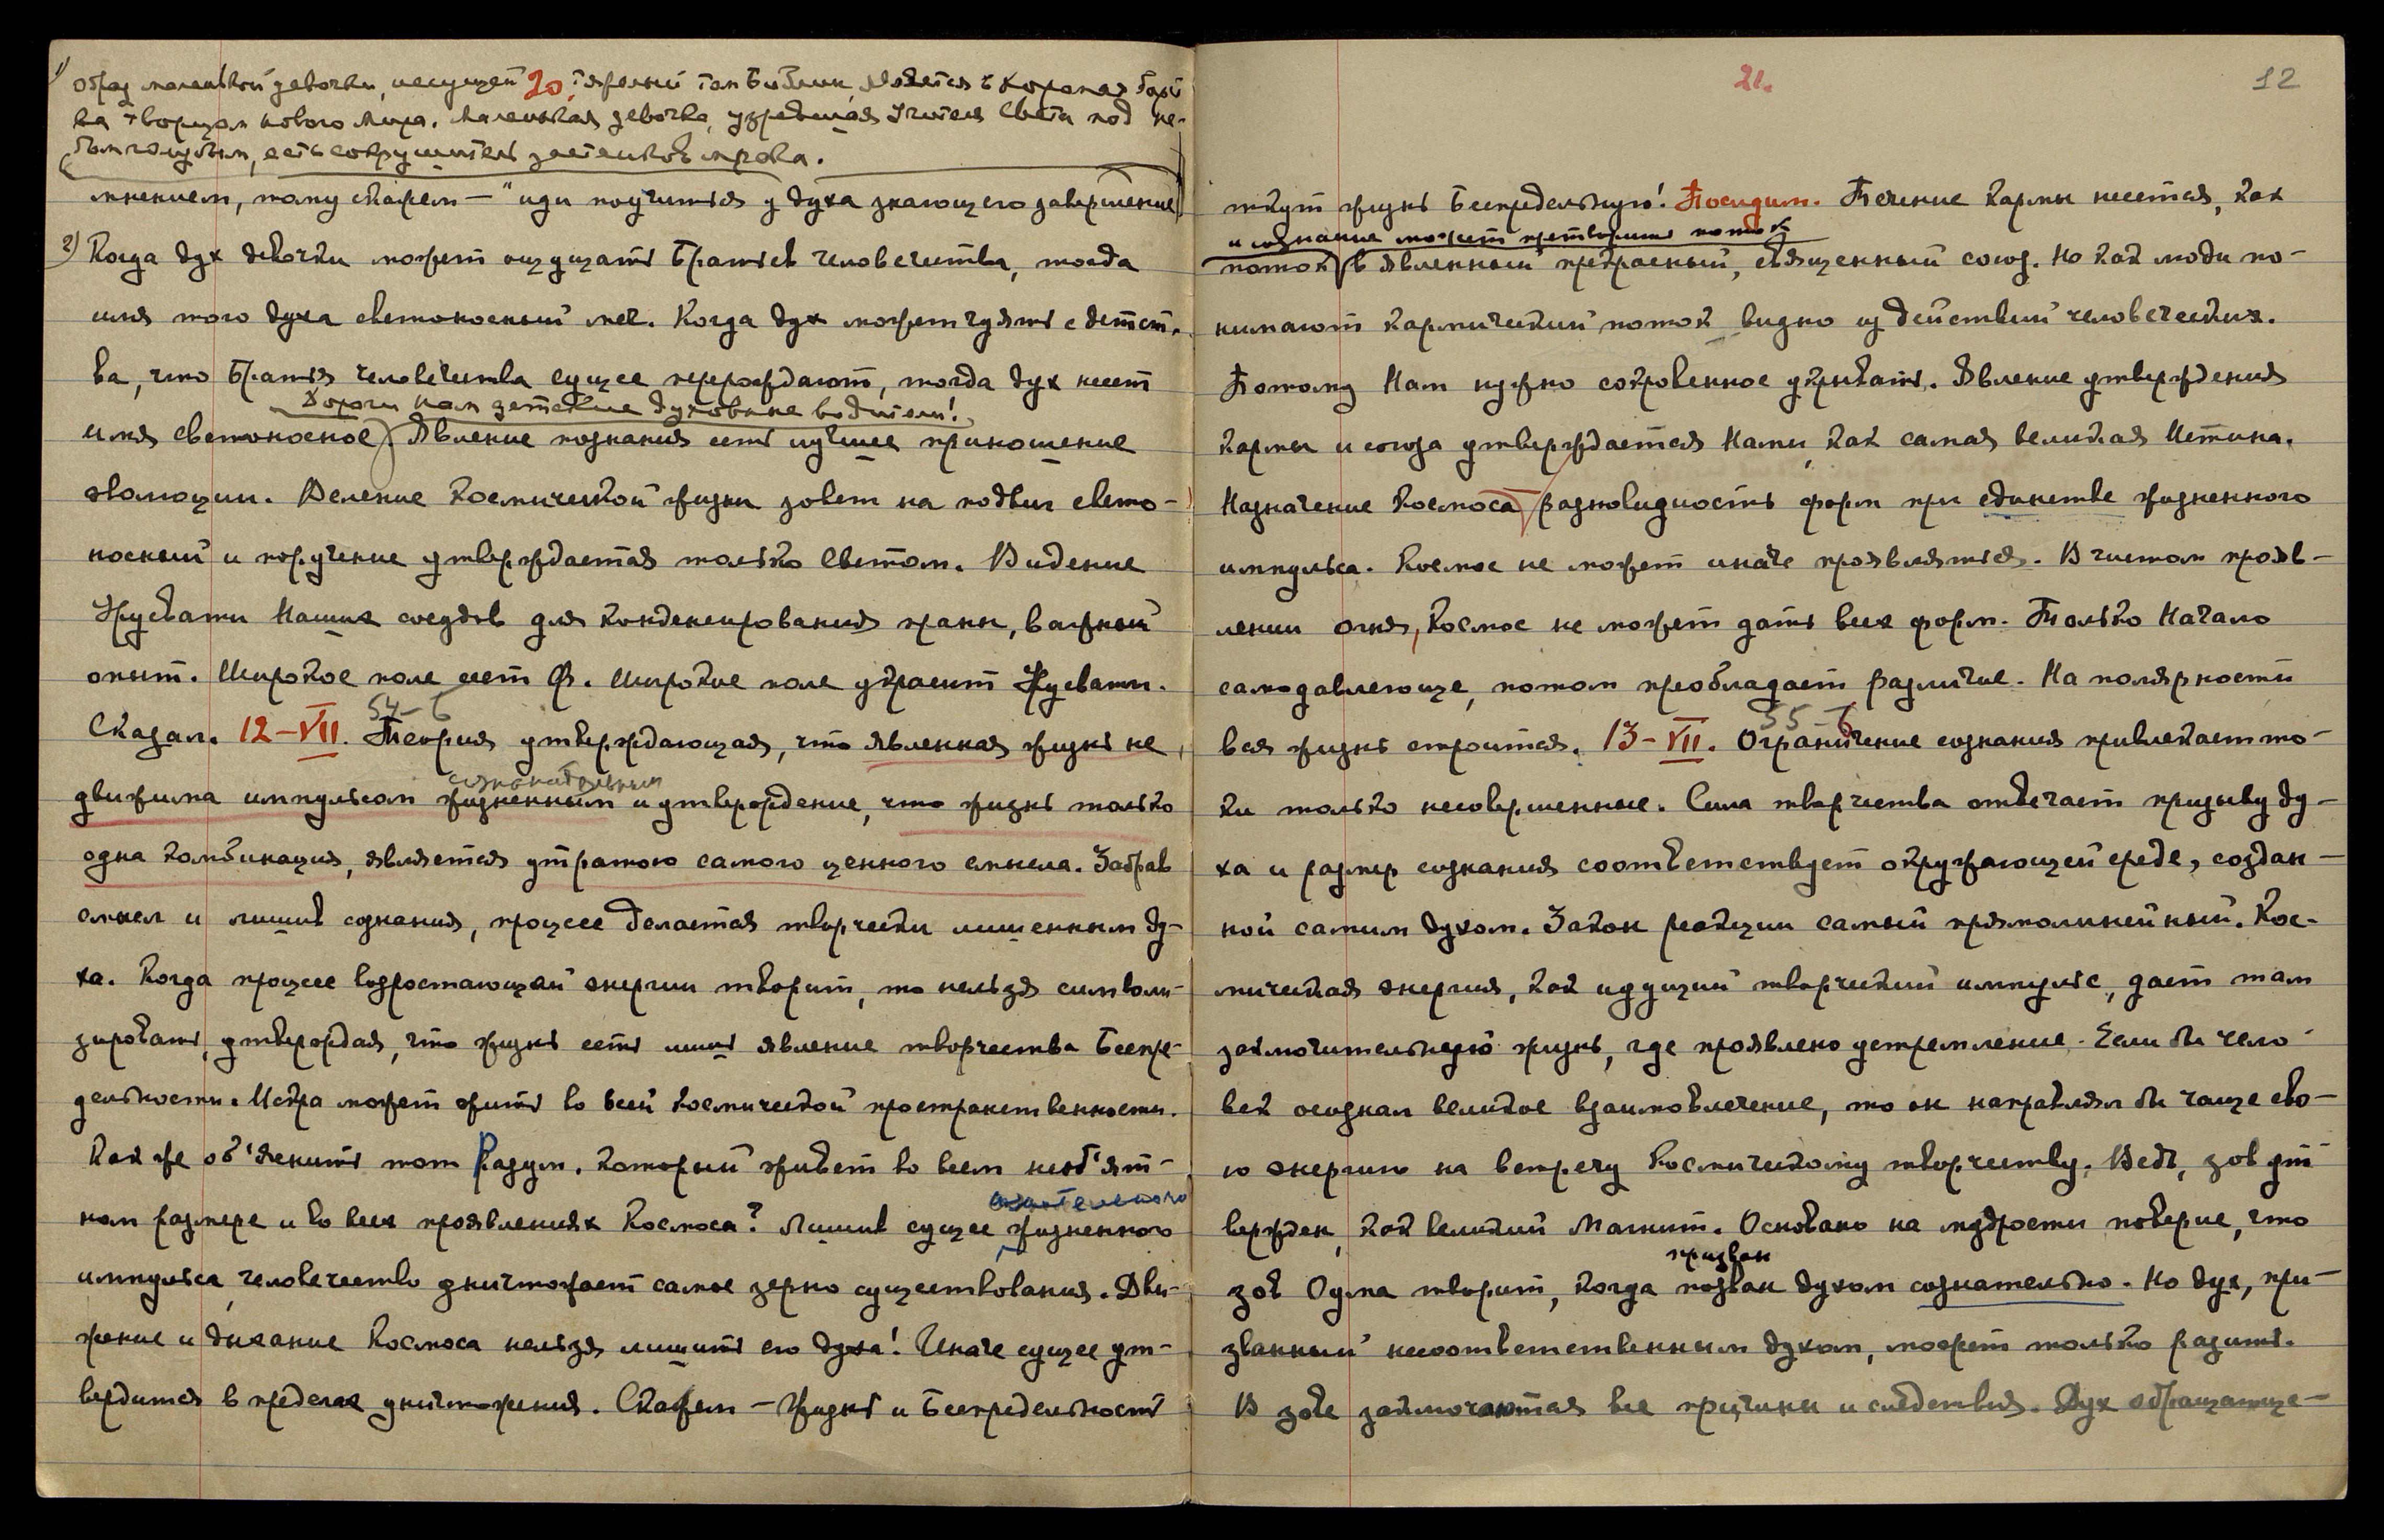 1) Образ маленькой девочки, несущей 20. тяжелый том Библии, явится в хоромах
ва творцом нового мира. Маленькая девочка, узревшая Учителя Света под не-
бом голубым, есть сокрушитель застенков мрака.
мнением, тому скажем — "иди поучиться у духа знающего завершение
2) Когда дух девочки может ощущать Братьев человечества, тогда
имя того духа светоносный меч. Когда дух может чуять с детст-
ва, что Братья человечества сущее перерождают, тогда дух несет
Дороги нам детские духовные водители!
имя светоносное. Явление познания есть лучшее приношение
эволюции. Веление космической жизни зовет на подвиг свето-
носный и поручение утверждается только Светом. Видение
Урусвати Наших сосудов для конденсирования праны, важный
опыт. Широкое поле сеет Ф. Широкое поле украсит Урусвати.
54-б
Сказал. 12-VII. Теория утверждающая, что явленная жизнь не
сознательным
движима импульсом жизненным и утверждение, что жизнь только
одна комбинация, является утратою самого ценного смысла. Забрав
смысл и лишив сознания, процесс делается творчески лишенным ду-
ха. Когда процесс возростающей энергии творит, то нельзя символи-
зировать, утверждая, что жизнь есть лишь явление творчества Беспре-
дельности. Искра может жить во всей космической пространственности.
Как же об'яснить тот Разум, который живет во всем необ'ят-
сознательного
ном размере и во всех проявлениях Космоса? Лишив сущее жизненного
импульса, человечество уничтожает самое зерно существования. Дви-
жение и дыхание Космоса нельзя лишить его духа! Иначе сущее ут-
вердится в пределах уничтожения. Скажем — Жизнь и Беспредельность
21.
12
ткут жизнь беспредельную! Посидим. Течение кармы несется, как
и сознание может претворить поток
поток в явленный прекрасный, священный союз. Но как люди по-
нимают кармический поток видно из действий человеческих.
Потому Нам нужно сокровенное укрывать. Явление утверждения
кармы и союза утверждается Нами, как самая великая Истина.
Назначение Космоса разновидность форм при единстве жизненного
импульса. Космос не может иначе проявляться. В чистом прояв-
лении огня, Космос не может дать всех форм. Только Начало
самодавлеюще, потом преобладает различие. На полярности
55-б
вся жизнь строится. 13-VII. Ограничение сознания привлекает то-
ки только несовершенные. Сила творчества отвечает призыву ду-
ха и размер сознания соответствует окружающей среде, создан-
ной самим духом. Закон реакции самый прямолинейный. Кос-
мическая энергия, как идущий творческий импульс, дает там
заключительную жизнь, где проявлено устремление. Если бы чело-
век осознал великое взаимовлечение, то он направлял бы чаще сво-
ю энергию на встречу Космическому творчеству. Ведь, зов ут-
вержден, как великий Магнит. Основано на мудрости поверие, что
призван
зов Оума творит, когда позван духом сознательно. Но дух, при-
званный несоответственным духом, может только разить.
В зове заключаются все причины и следствия. Дух обращающе-